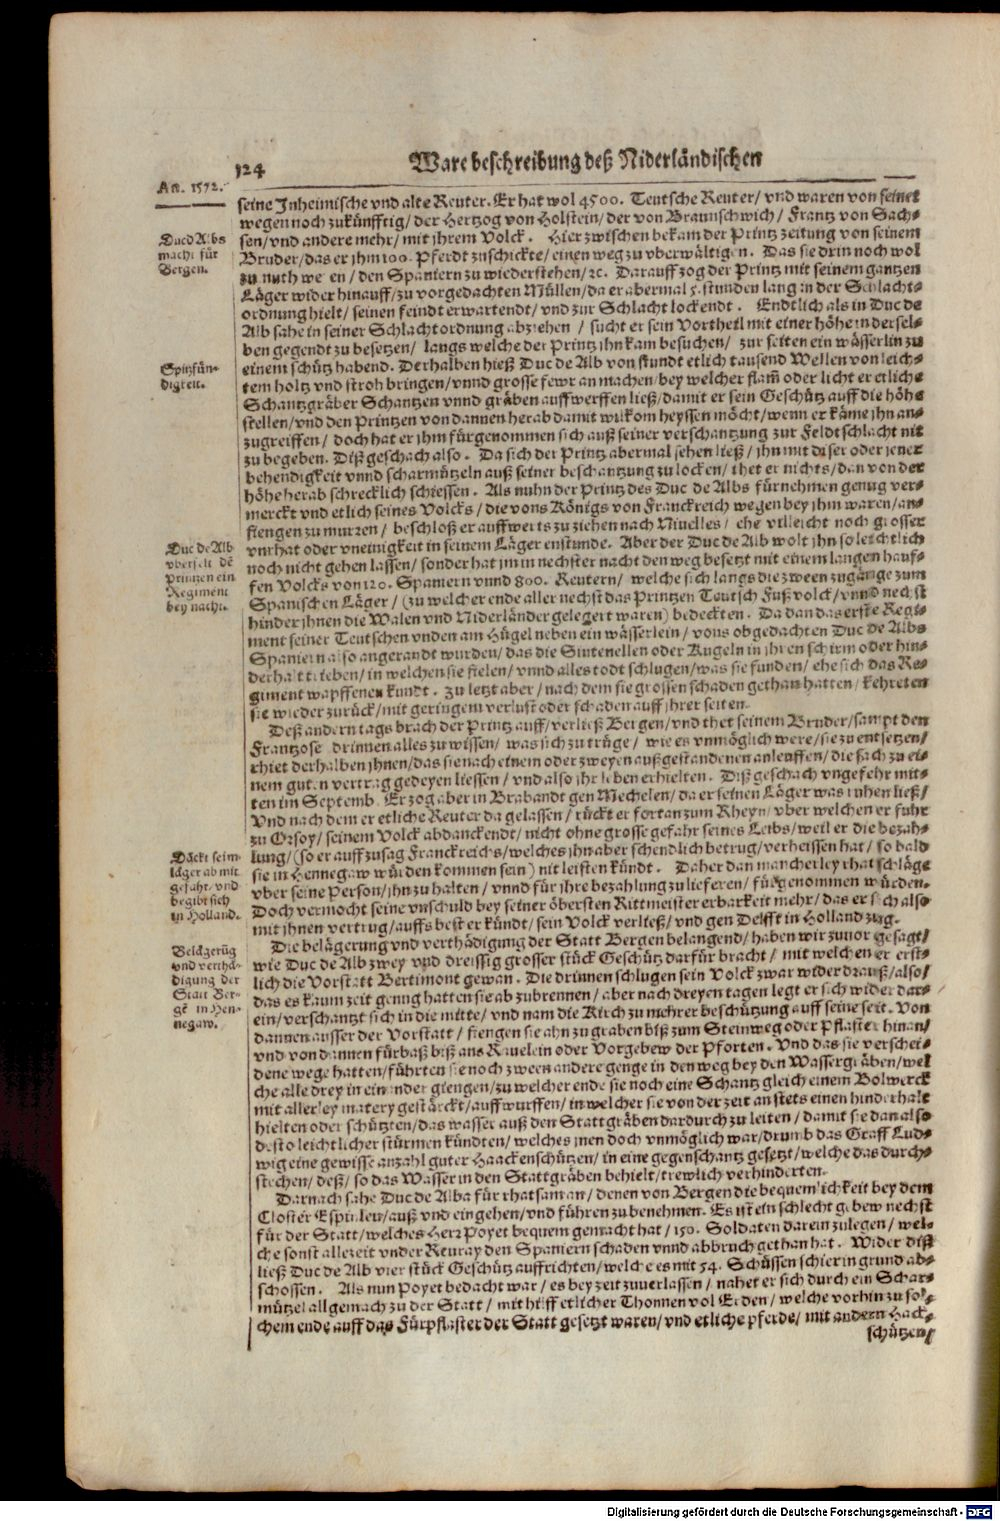 124
Ware beschreibung deß Niderländischen
An. 1572.
seine Inheimische vnd alte Reuter. Er hat wol 4500. Teutsche Reuter/ vnd waren von seinet
wegen noch zukünfftig/ der Hertzog von Holstein/ der von Braunschwich/ Frantz von Sach-
sen/ vnd andere mehr/ mit jhrem Volck. Hier zwischen bekam der Printz zeitung von seinem
Bruder/ das er jhm 100. Pferdt zuschickte/ einen weg zu vberwältigen. Das sie drin noch wol
zu muth we en/ den Spaniern zu wiederstehen/ ꝛc. Darauff zog der Printz mit seinem gantzen
Läger wider hinauff/ zu vorgedachten Müllen/ da er abermal 5. stunden lang in der Schlacht-
ordnung hielt/ seinen feindt erwartendt/ vnd zur Schlacht lockendt. Endtlich als in Duc de
Alb sahe in seiner Schlachtordnung abziehen/ sucht er sein Vortheil mit einer höhe in dersel-
ben gegendt zu besetzen/ langs welche der Printz jhn kam besuchen/ zur seiten ein wässerlin zu
einem schütz habend. Derhalben hieß Duc de Alb von stundt etlich tausend Wellen von leich-
tem holtz vnd stroh bringen/ vnnd grosse fewr an machen/ bey welcher flam̃ oder licht er etliche
Schantzgräber Schantzen vnnd gräben auffwerffen ließ/ damit er sein Geschütz auff die höhe
stellen/ vnd den Printzen von dannen herab damit wilkom heyssen möcht/ wenn er käme jhn an-
zugreiffen/ doch hat er jhm fürgenommen sich auß seiner verschantzung zur Feldtschlacht nit
zu begeben. Diß geschach also. Da sich der Printz abermal sehen ließ/ jhn mit diser oder jener
behendigkeit vnnd scharmützeln auß seiner beschantzung zu locken/ thet er nichts/ dan von der
höhe herab schrecklich schiessen. Als nuhn der Printz des Duc de Albs fürnehmen genug ver-
merckt vnd etlich seines Volcks/ die vons Königs von Franckreich wegen bey jhm waren/ an-
fiengen zu murren/ beschloß er auffwerts zu ziehen nach Niuelles/ ehe villeicht noch grosser
vnrhat oder vneinigkeit in seinem Läger enstunde. Aber der Duc de Alb wolt jhn so leichtlich
noch nicht gehen lassen/ sonder hat jm in nechster nacht den weg besetzt mit einem langen hauf-
fen Volcks von 120. Spaniern vnnd 800. Reutern/ welche sich langs die zween zugänge zum
Spanischen Läger/ (zu welcher ende aller nechst das Printzen Teutsch Fußvolck/ vnnd nechst
hinder jhnen die Walen vnd Niderländer gelegert waren) bedeckten. Da dan das erste Regi-
ment seiner Teutschen vnden am Hügel neben ein wässerlein/ vons obgedachten Duc de Albs
Spaniern also angerandt wurden/ das die Sintenellen oder Kugeln in jhren schirm oder hin-
derhalt trieben/ in welchen sie fielen/ vnnd alles todt schlugen/ was sie funden/ ehe sich das Re-
giment wapffenen kundt. Zu letzt aber/ nach dem sie grossen schaden gethan hatten/ kehreten
sie wieder zurück/ mit geringem verlust oder schaden auff jhrer seiten.
Deß andern tags brach der Printz auff/ verließ Bergen/ vnd thet seinem Bruder/ sampt den
Frantzose drinnen alles zu wissen/ was sich zu trüge/ wie es vnmöglich were/ sie zu entsetzen/
rhiet derhalben jhnen/ das sie nach einem oder zweyen außgestandenen anleuffen/ die sach zu ei-
nem guten vertrag gedeyen liessen/ vnd also jhr leben erhielten. Diß geschach vngefehr mit-
ten im Septemb. Er zog aber in Brabandt gen Mechelen/ da er seinen Läger was ruhen ließ/
Vnd nach dem er etliche Reuter da gelassen/ rückt er fortan zum Rheyn/ vber welchen er fuhr
zu Orsoy/ seinem Volck abdanckendt/ nicht ohne grosse gefahr seines Leibs/ weil er die bezah-
lung/ (so er auff zusag Franckreichs/ welches jhn aber schendlich betrug/ verheissen hat/ so bald
sie in Hennegaw würden kommen sein) nit leisten kündt. Daher dan mancherley rhatschläge
vber seine Person/ jhn zu halten/ vnnd für jhre bezahlung zu lieferen/ fürgenommen würden.
Doch vermocht seine vnschuld bey seiner öbersten Rittmeister erbarkeit mehr/ das er sich also
mit jhnen vertrug/ auffs best er kündt/ sein Volck verließ/ vnd gen Delfft in Holland zug.
Die belägerung vnd verthädigung der Statt Bergen belangend/ haben wir zuuor gesagt/
wie Duc de Alb zwey vnd dreissig grosser stück Geschütz darfür bracht/ mit welchen er erst-
lich die Vorstatt Bertimont gewan. Die drinnen schlugen sein Volck zwar wider drauß/ also/
das es kaum zeit genug hatten sie ab zubrennen/ aber nach dreyen tagen legt er sich wider dar-
ein/ verschantzt sich in die mitte/ vnd nam die Kirch zu mehrer beschützung auff seine seit. Von
dannen ausser der Vorstatt/ fiengen sie ahn zu graben biß zum Steinweg oder Pflaster hinan/
vnd von dannen fürbaß biß ans Rauelein oder Vorgebew der Pforten. Vnd das sie verschei-
dene wege hatten/ führten sie noch zween andere genge in den weg bey den Wassergräben/ wel
che alle drey in einander giengen/ zu welcher ende sie noch eine Schantz gleich einem Bolwerck
mit allerley matery gestärckt/ auffwurffen/ in welcher sie von der zeit an stets einen hinderhalt
hielten oder schützten/ das wasser auß den Stattgräben dardurch zu leiten/ damit sie dan also
desto leichtlicher stürmen kündten/ welches jnen doch vnmöglich war/ drumb das Graff Lud-
wig eine gewisse anzahl guter Haackenschützen/ in eine gegenschantz gesetzt/ welche das durch-
stechen/ deß/ so das Wasser in den Stattgräben behielt/ trewlich verhinderten.
Darnach sahe Duc de Alba für rhatsam an/ denen von Bergen die bequemlichkeit bey dem
Closter Espinleu/ auß vnd eingehen/ vnd führen zu benehmen. Es ist ein schlecht gebew nechst
für der Statt/ welches Herr Poyet bequem gemacht hat/ 150. Soldaten darein zulegen/ wel-
che sonst allezeit vnder Reuray den Spaniern schaden vnnd abbruch gethan hat. Wider diß
ließ Duc de Alb vier stück Geschütz auffrichten/ welche es mit 54. Schüssen schier in grund ab-
schossen. Als nun Poyet bedacht war/ es bey zeit zuuerlassen/ nahet er sich durch ein Schar-
mützel allgemach zu der Statt/ mit hilff etlicher Thonnen vol Erden/ welche vorhin zu sol-
chem ende auff das Fürpflaster der Statt gesetzt waren/ vnd etliche pferde/ mit andern Hack-
schützen/
Duc d'Albs
macht für
Bergen.
Spitzfün-
digkeit.
Duc de Alb
vberfelt dẽ
Printzen ein
Regiment
bey nacht.
Däckt seim
läger ab mit
gefahr/ vnd
begibt sich
in Holland.
Belägerũg
vnd verthä-
digung der
Statt Ber-
gẽ in Hen-
negaw.
Digitalisierung gefördert durch die Deutsche Forschungsgemeinschaft - DFG